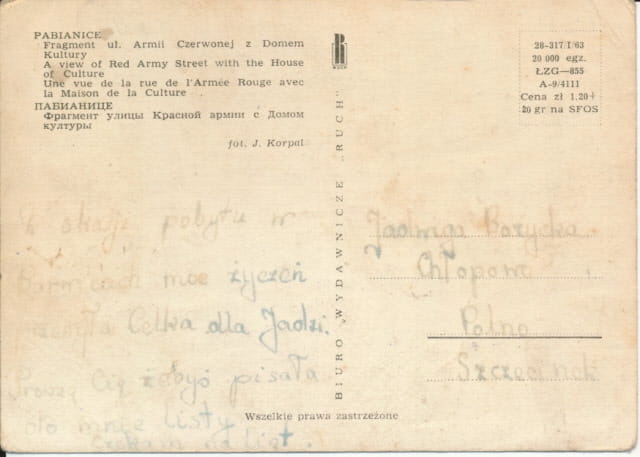 PABIANICE
Fragment ul. Armii Czerwonej z Domem
Kultury
A view of Red Army Street with the House
of Culture
Une vue de la rue de l'Armée Rouge avec
la Maison de la Culture
ПАБИАНИЦЕ
Фрагмент улицы Красной армии с Домом
культуры
fot. J. Korpal
Z okazji pobytu w
moc życzeń
Celka dla Jadzi.
Proszę Cię żebyś pisała
do mnie listy
Czekam na list.
BIURO WYDAWNICZE „RUCH"
RUCH
28-317/I/63
20 000 egz.
ŁZG—855
A-9/4111
Cena zł 1.20+
20 gr na SFOS
Jadwiga
Szczecinek
Wszelkie prawa zastrzeżone